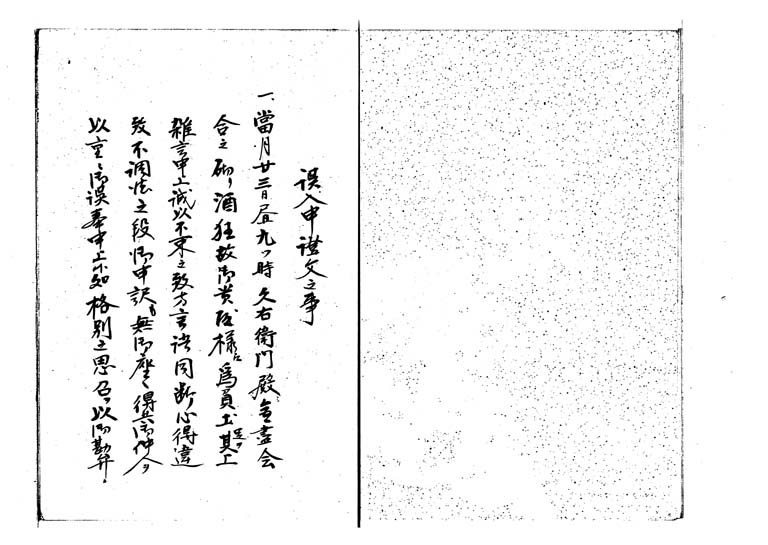 誤入申證文之事
一、當月廿三日昼九ツ時久右衛門殿ニ而盡会
合之砌り酒狂故御貴殿様江為員土其上
雑言申上誠以不束之致方言語同断心得違
致不調法之段御申訳も無御座候得共御仲人ヲ
以重々御誤奉申上候処格別之思召ヲ以御勘弁